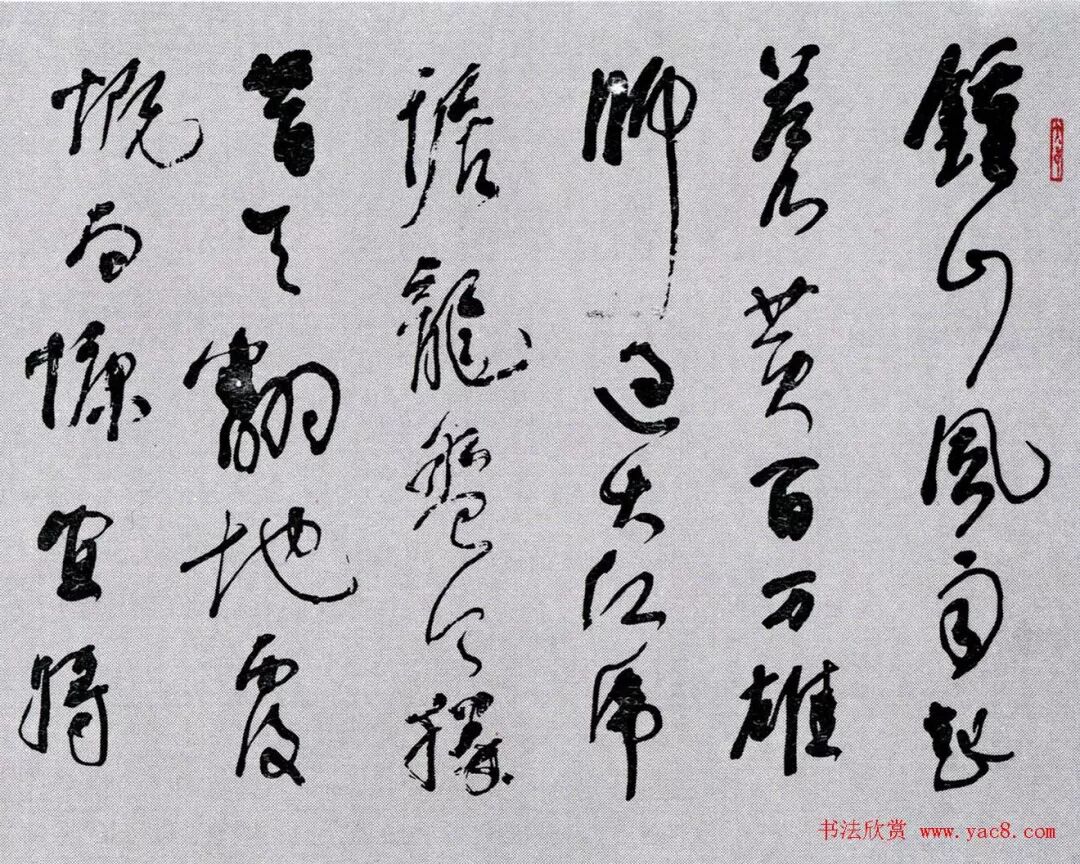 鍾山風雨起
蒼黄百万雄
師過大江虎
踞龍盤今勝
昔天翻地覆
慨而慷宜將
书法欣赏 www.yac8.com